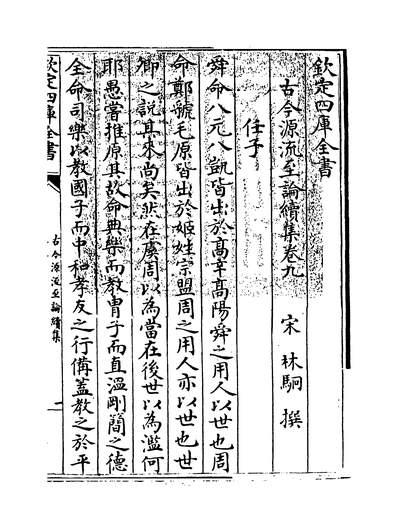 欽定四庫全書
古今源流至論續集卷九
宋 林駉 撰
任子
舜命八元八凱皆出於髙辛髙陽舜之用人以世也周
命鄭虢毛原皆出於姬姓宗盟周之用人亦以世也世
卿之説其來尚矣然在虞周以為當在後世以為濫何
耶愚嘗推原其故命典樂而教胄子而直溫剛簡之德
全命司樂以教國子而中和孝友之行備蓋教之於平
欽定四庫全書
古今源流至論續集
一